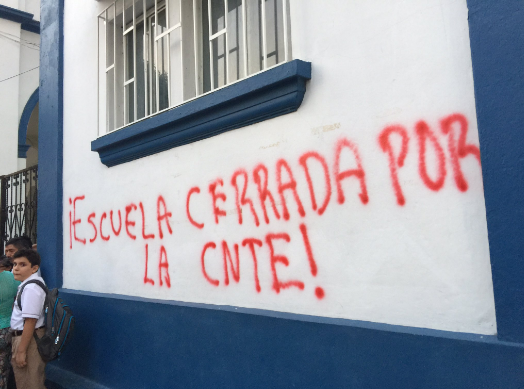 ¡ESCUELA CERRADA POR
LA CNTE!